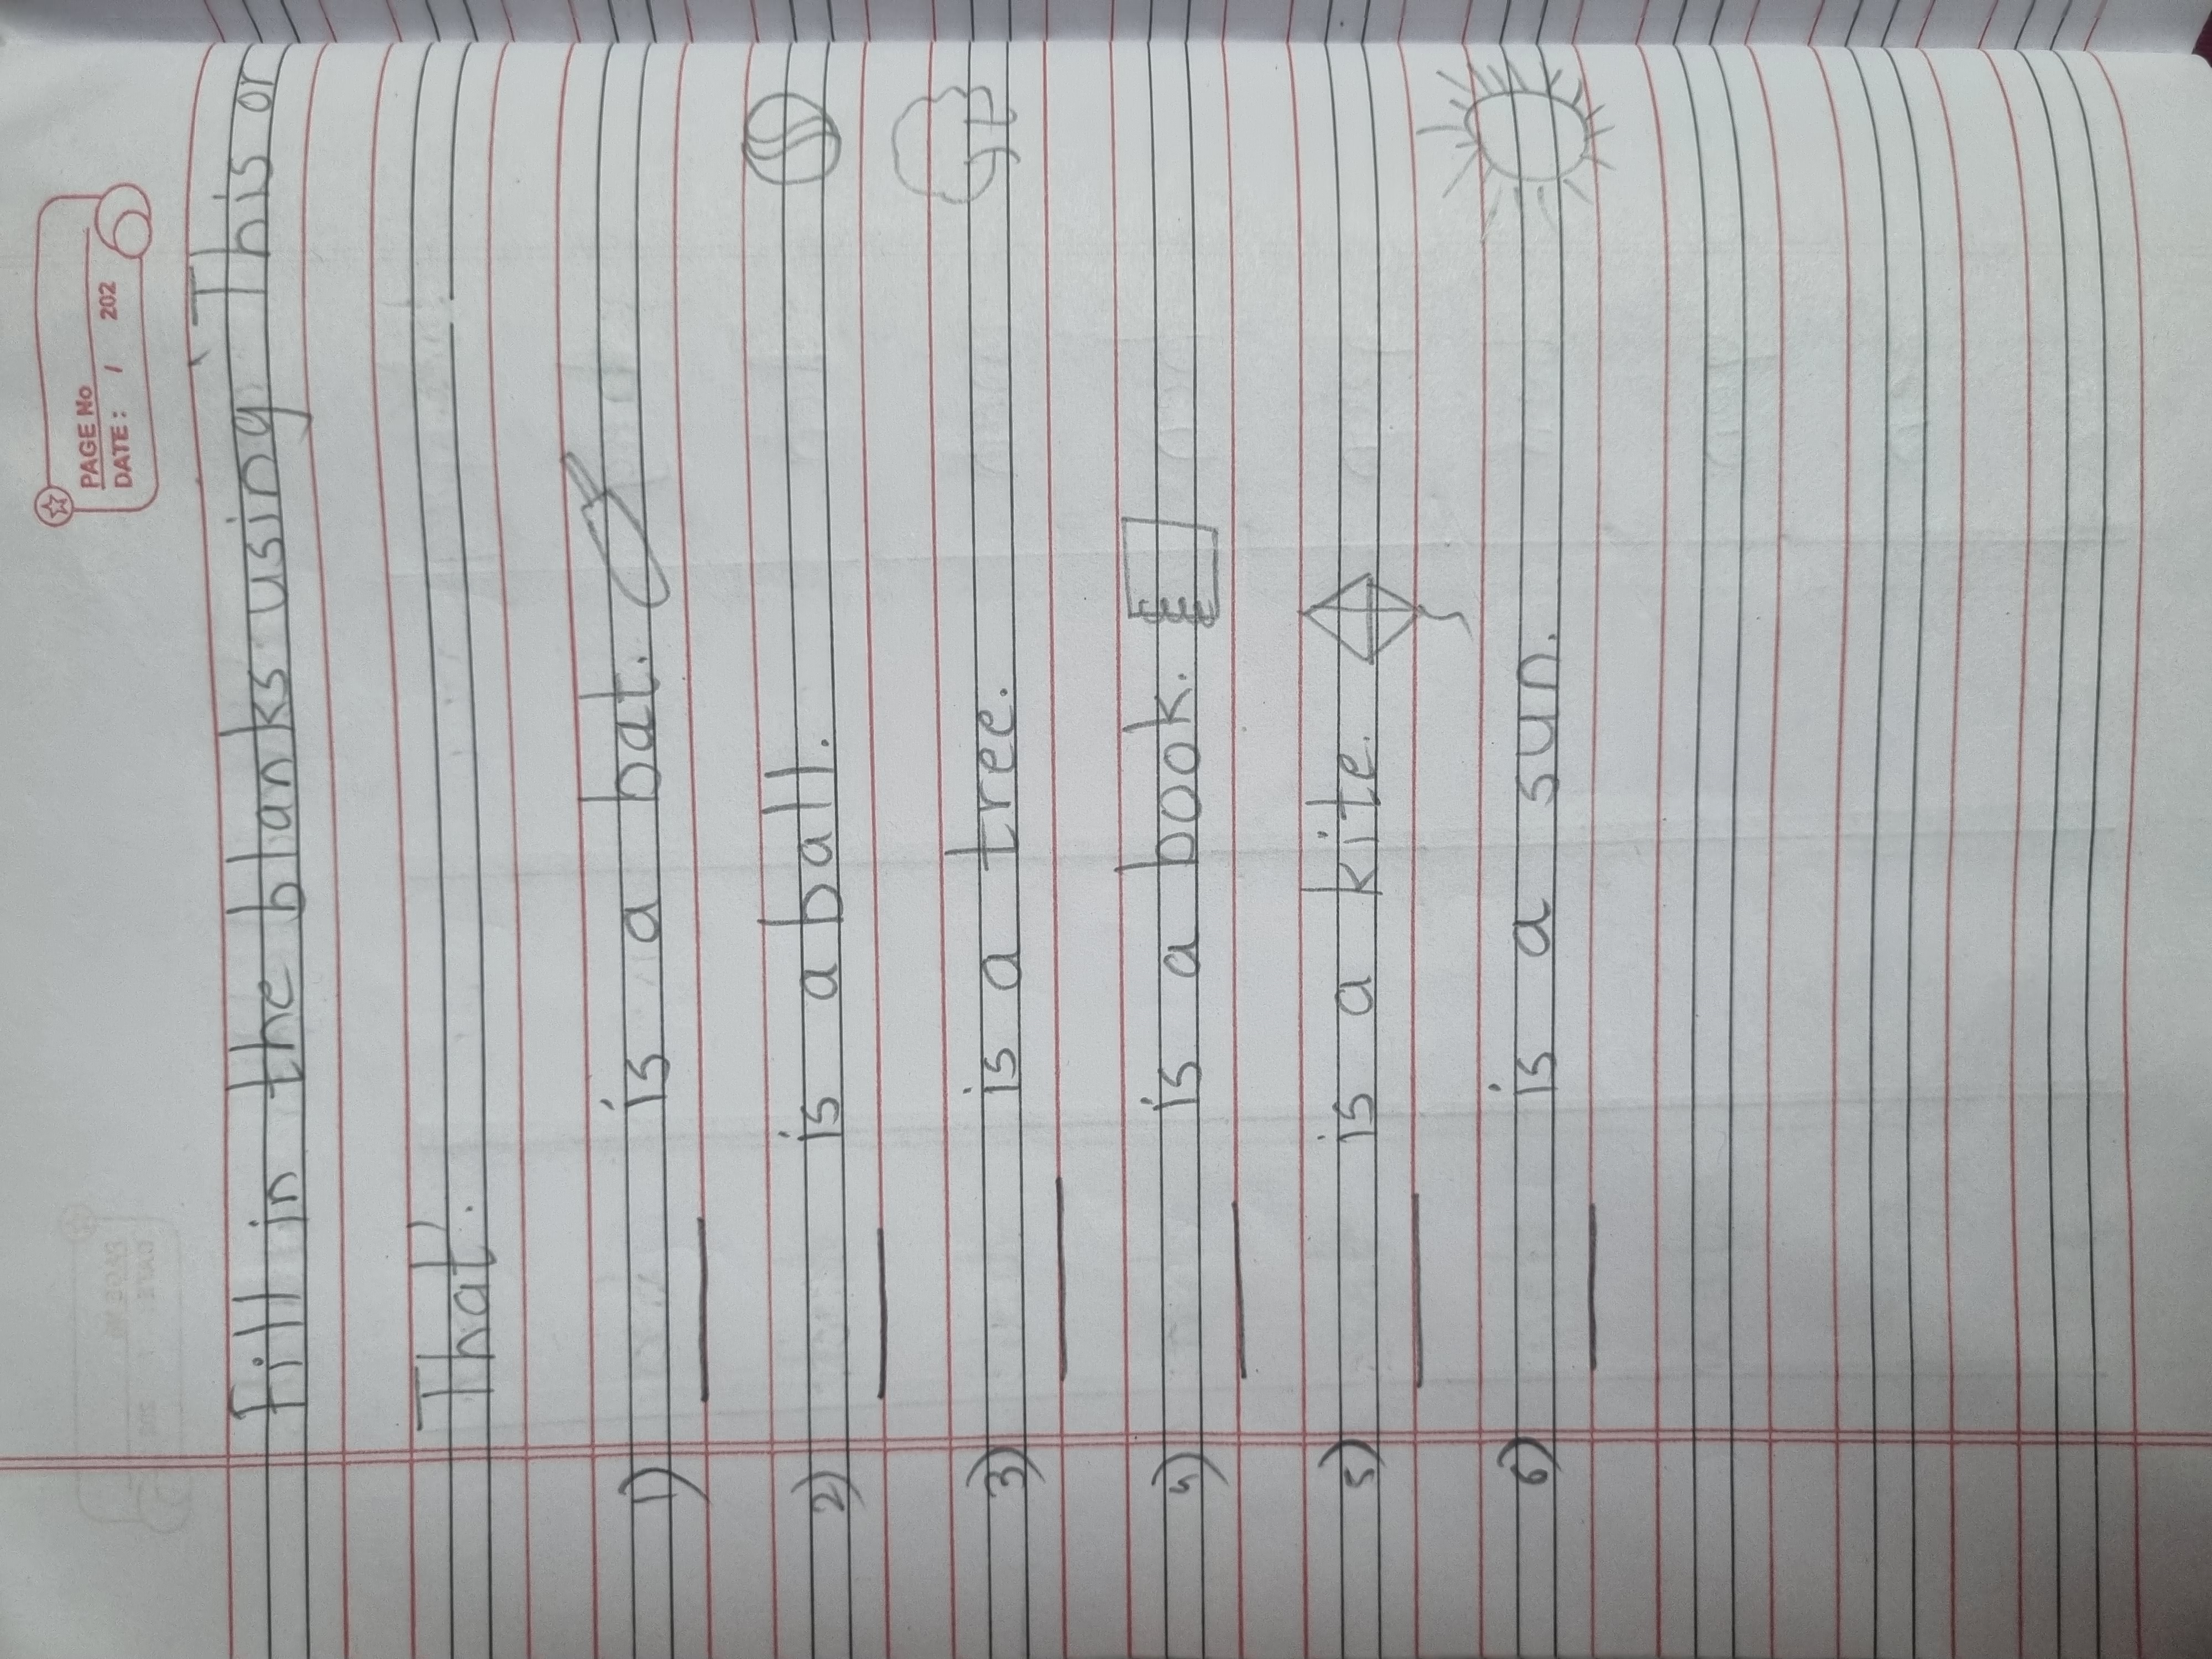 PAGE No
DATE: / 202
Fill in the blanks using 'This or
That'.
1) ____ is a bat.
2) ____ is a ball.
3) ____ is a tree.
4) ____ is a book.
5) ____ is a kite.
6) ____ is a sun.